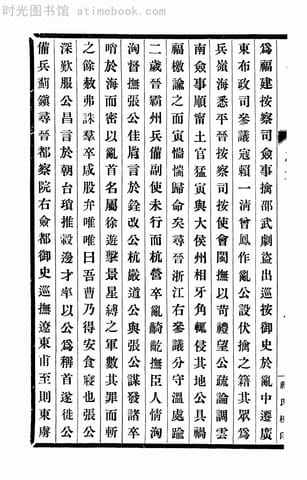 时光 atimebook.com
為福建按察司僉事擒邵武劇盜出巡按御史於亂中遷廣
東布政司參議寇賴一清曾鳳作亂公設伏擒之籍其眾為
兵嶺海悉平晉按察司按使會閩撫以苛禮望公疏論調雲
南僉事順甯土官猛寅與大侯州相牙角輒侵其地公具禍
福檄諭之而寅惴惴歸命矣尋晉浙江右參議分守溫處踰
二歲晉霸州兵備副使未行而杭營卒亂齮齕撫臣人情洶
洶督撫張公佳胤言於銓改公杭嚴道公與張公謀發諸卒
哨於海而密以亂首名屬徐遊擊景星縛之軍數其罪而斬
之餘赦弗誅羣卒咸股弁唯唯曰吾曹乃得安食寢也張公
深歎服公昌言於朝台瑣推轂邊才率以公為稱首遂徙公
備兵薊鎮尋晉都察院右僉都御史巡撫遼東甫至則東虜